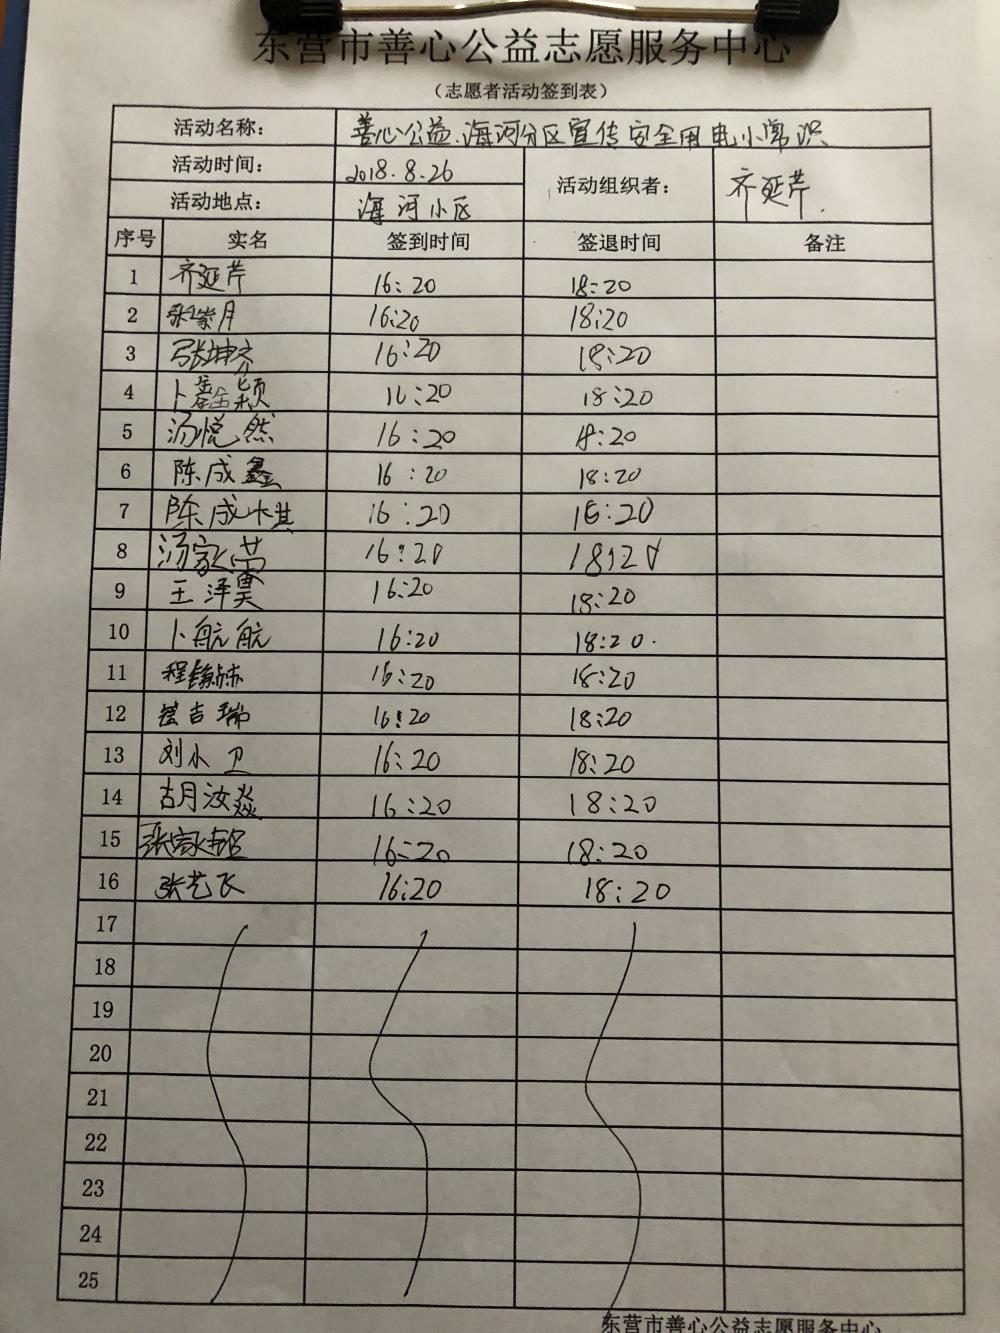 东营市善心公益志愿服务中心
（志愿者活动签到表）
活动名称： 善心公益.海河分区宣传安全用电小常识
活动时间： 2018.8.26 活动组织者： 齐延芹
活动地点： 海河小区
序号 实名 签到时间 签退时间 备注
1 齐延芹 16:20 18:20
2 张紫月 16:20 18:20
3 张坤 16:20 18:20
4 卜鑫颖 16:20 18:20
5 汤悦然 16:20 18:20
6 陈成鑫 16:20 18:20
7 陈成 16:20 18:20
8 汤家 16:20 18:20
9 王泽昊 16:20 18:20
10 卜航航 16:20 18:20.
11 程 16:20 18:20
12 吉瑞 16:20 18:20
13 刘小卫 16:20 18:20
14 胡汝焱 16:20 18:20
15 张 16:20 18:20
16 张艺飞 16:20 18:20
17
18
19
20
21
22
23
24
25
东营市善心公益志愿服务中心